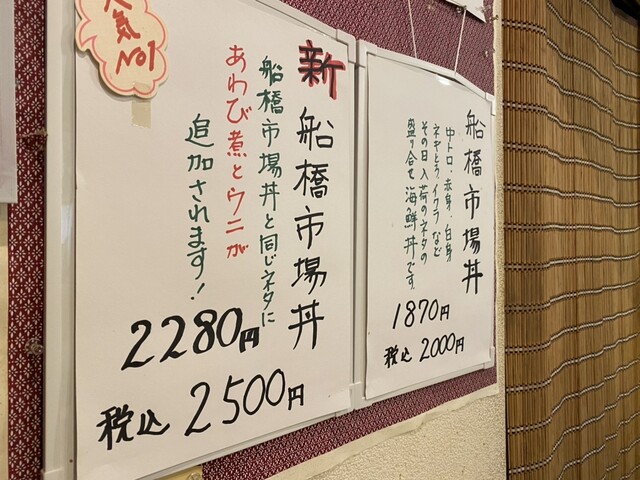 人気
No1
新
船橋市場丼
船橋市場丼と同じネタに
あわび煮とウニが
追加されます!
2280円
税込 2500円
船橋市場丼
中トロ、赤身、白身
ネギトロ、イクラなど
その日入荷のネタの
盛り合せ海鮮丼です。
1870円
税込 2000円